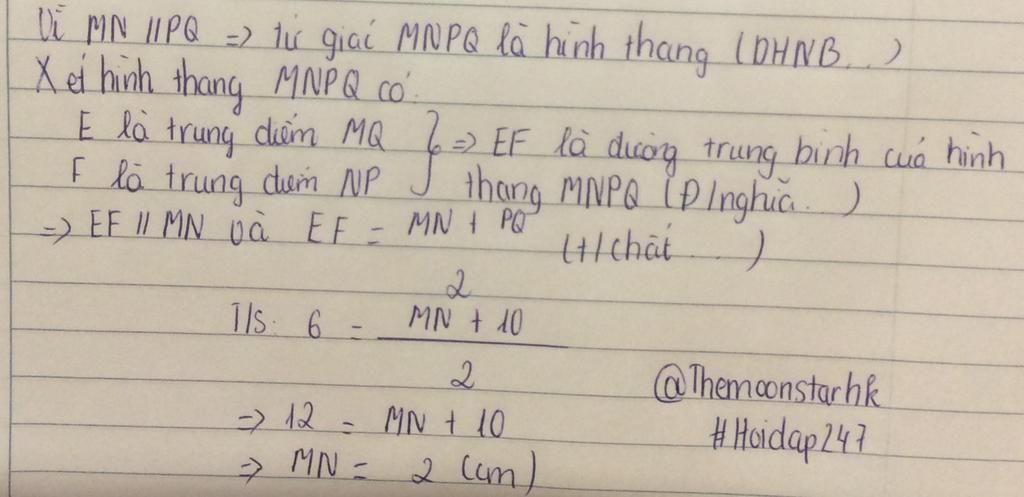 Vì MN // PQ => tứ giác MNPQ là hình thang (DHNB...)
Xét hình thang MNPQ có:
E là trung điểm MQ } => EF là đường trung bình của hình
F là trung điểm NP thang MNPQ (Đ/nghĩa...)
=> EF // MN và EF = MN + PQ (t/chất...)
2
T/S: 6 = MN + 10
2
=> 12 = MN + 10
=> MN = 2 (cm)
@Themoonstarhk
#Hoidap247